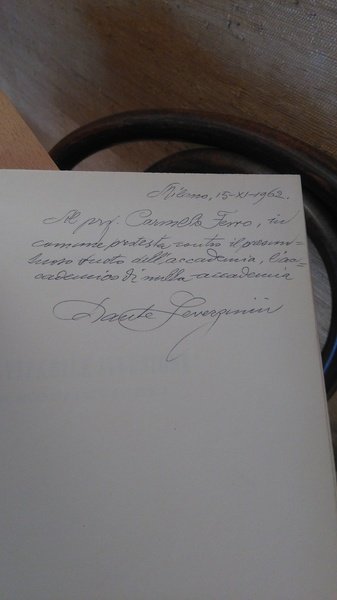 Milano, 15-XI-1962.
Al prof. Carmelo Ferro, in
comune protesta contro il presun=
tuoso vuoto dell'accademia, l'ac=
cademico di nulla accademia
Dante Severgnini